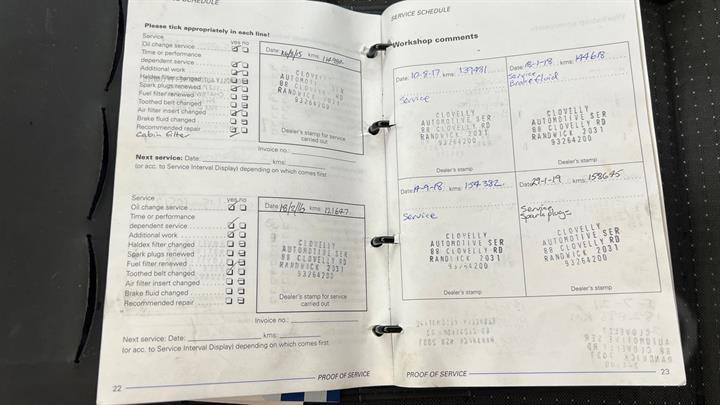 SERVICE SCHEDULE
Please tick appropriately in each line!
Service yes no
Oil change service
Time or performance
dependent service
Additional work
Haldex filter changed
Spark plugs renewed
Fuel filter renewed
Toothed belt changed
Air filter insert changed
Brake fluid changed
Recommended repair
Cabin filter
Date: kms:
CLOVELLY
AUTOMOTIVE SER
88 CLOVELLY RD
RANDWICK 2031
93264200
Dealer's stamp for service
carried out
Invoice no.:
Next service: Date: kms:
(or acc. to Service Interval Display) depending on which comes first
Service yes no
Oil change service
Time or performance
dependent service
Additional work
Haldex filter changed
Spark plugs renewed
Fuel filter renewed
Toothed belt changed
Air filter insert changed
Brake fluid changed
Recommended repair
Date: kms: 121647
CLOVELLY
AUTOMOTIVE SER
88 CLOVELLY RD
RANDWICK 2031
93264200
Dealer's stamp for service
carried out
Invoice no.:
Next service: Date: kms:
(or acc. to Service Interval Display) depending on which comes first
22 PROOF OF SERVICE
SERVICE SCHEDULE
Workshop comments
Date: 10-8-17 kms: 137481
Service
CLOVELLY
AUTOMOTIVE SER
88 CLOVELLY RD
RANDWICK 2031
93264200
Dealer's stamp
Date: 18-1-18 kms: 144618
Service
Brake fluid
CLOVELLY
AUTOMOTIVE SER
88 CLOVELLY RD
RANDWICK 2031
93264200
Dealer's stamp
Date: kms: 154382
Service
CLOVELLY
AUTOMOTIVE SER
88 CLOVELLY RD
RANDWICK 2031
93264200
Dealer's stamp
Date: 29-1-19 kms: 158645
Service
Spark plugs
CLOVELLY
AUTOMOTIVE SER
88 CLOVELLY RD
RANDWICK 2031
93264200
Dealer's stamp
PROOF OF SERVICE 23